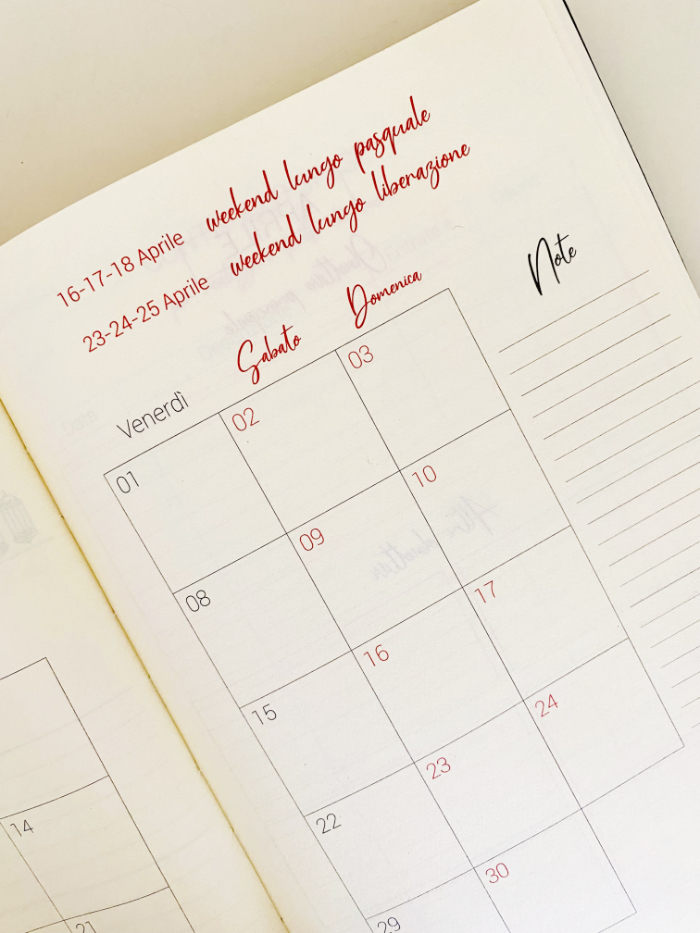 16-17-18 Aprile weekend lungo pasquale
23-24-25 Aprile weekend lungo liberazione
Note
Venerdì Sabato Domenica
01 02 03
08 09 10
15 16 17
14 22 23 24
21 29 30